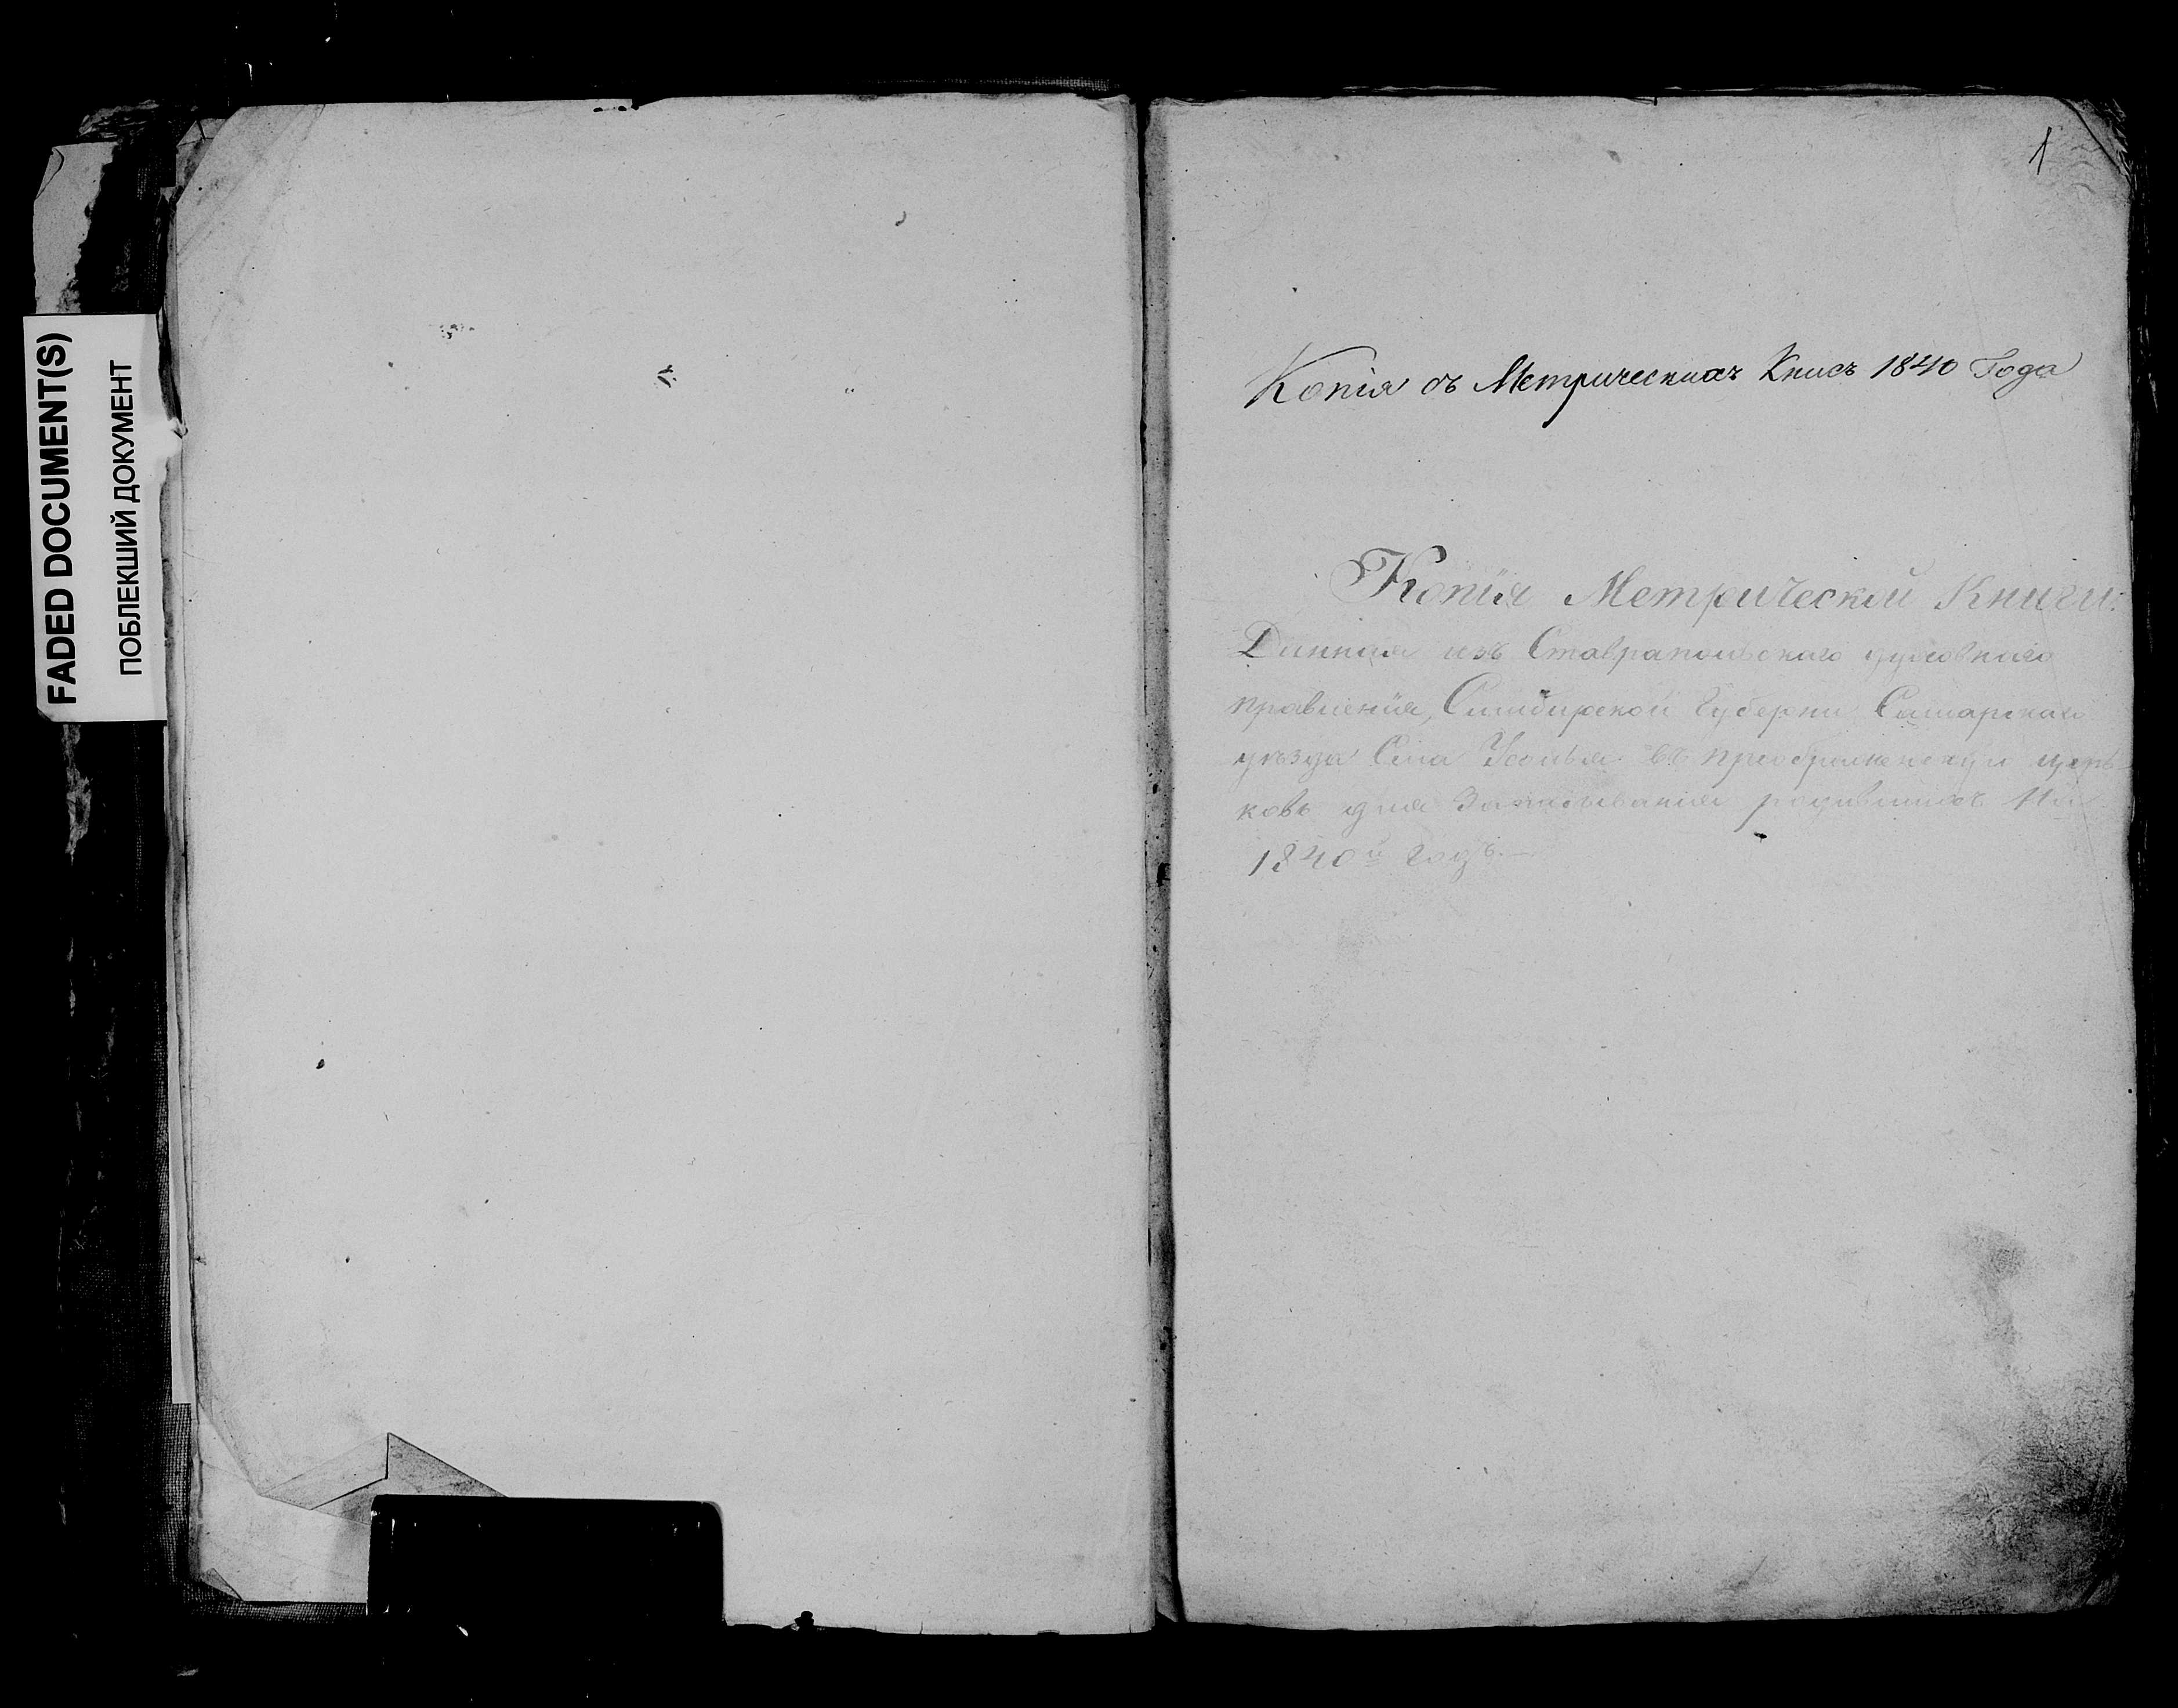 FADED DOCUMENT(S)
ПОБЛЕКШИЙ ДОКУМЕНТ
1
Копія съ Метрическихъ Книгъ 1840 Года
Копія Метрической Книги:
Данная изъ Ставрапольскаго духовнаго
правленія, Симбирской Губерни Самарскаго
уѣзда Села Усолья въ преображенскую цер-
ковь для Записыванія родившихъ На
1840й годъ.—